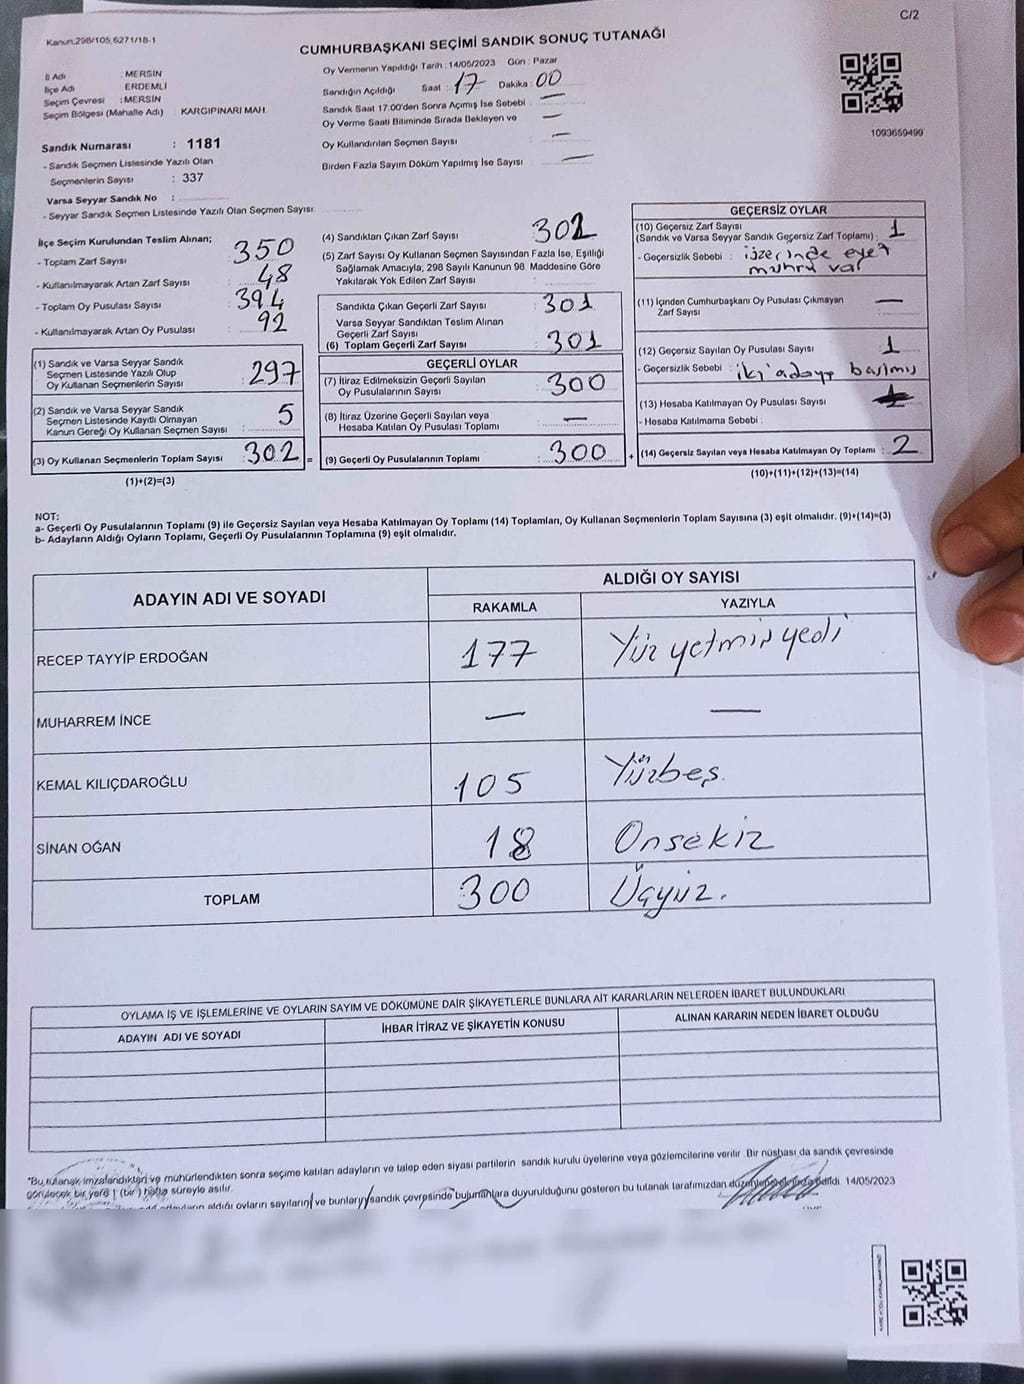 Kanun,298/105,6271/18-1
C/2
CUMHURBAŞKANI SEÇİMİ SANDIK SONUÇ TUTANAĞI
İl Adı : MERSİN
İlçe Adı : ERDEMLİ
Seçim Çevresi : MERSİN
Seçim Bölgesi (Mahalle Adı) KARGIPINARI MAH.
Sandık Numarası : 1181
- Sandık Seçmen Listesinde Yazılı Olan
Seçmenlerin Sayısı : 337
Varsa Seyyar Sandık No :
- Seyyar Sandık Seçmen Listesinde Yazılı Olan Seçmen Sayısı:
Oy Vermenin Yapıldığı Tarih : 14/05/2023 Gün : Pazar
Sandığın Açıldığı Saat : 17 Dakika : 00
Sandık Saat 17:00'den Sonra Açımış İse Sebebi : —
Oy Verme Saati Bitiminde Sırada Bekleyen ve —
Oy Kullandırılan Seçmen Sayısı : —
Birden Fazla Sayım Döküm Yapılmış İse Sayısı : —
1093659499
İlçe Seçim Kurulundan Teslim Alınan;
- Toplam Zarf Sayısı : 350
- Kullanılmayarak Artan Zarf Sayısı : 48
- Toplam Oy Pusulası Sayısı : 394
- Kullanılmayarak Artan Oy Pusulası : 92
(1) Sandık ve Varsa Seyyar Sandık
Seçmen Listesinde Yazılı Olup
Oy Kullanan Seçmenlerin Sayısı : 297
(2) Sandık ve Varsa Seyyar Sandık
Seçmen Listesinde Kayıtlı Olmayan
Kanun Gereği Oy Kullanan Seçmen Sayısı : 5
(3) Oy Kullanan Seçmenlerin Toplam Sayısı : 302 =
(1)+(2)=(3)
(4) Sandıktan Çıkan Zarf Sayısı : 302
(5) Zarf Sayısı Oy Kullanan Seçmen Sayısından Fazla İse, Eşitliği
Sağlamak Amacıyla, 298 Sayılı Kanunun 98. Maddesine Göre
Yakılarak Yok Edilen Zarf Sayısı :
Sandıkta Çıkan Geçerli Zarf Sayısı : 301
Varsa Seyyar Sandıktan Teslim Alınan
Geçerli Zarf Sayısı
(6) Toplam Geçerli Zarf Sayısı : 301
GEÇERLİ OYLAR
(7) İtiraz Edilmeksizin Geçerli Sayılan
Oy Pusulalarının Sayısı : 300
(8) İtiraz Üzerine Geçerli Sayılan veya
Hesaba Katılan Oy Pusulası Toplamı : —
(9) Geçerli Oy Pusulalarının Toplamı : 300 +
GEÇERSİZ OYLAR
(10) Geçersiz Zarf Sayısı
(Sandık ve Varsa Seyyar Sandık Geçersiz Zarf Toplamı) : 1
- Geçersizlik Sebebi : üzerinde evet
mührü var
(11) İçinden Cumhurbaşkanı Oy Pusulası Çıkmayan
Zarf Sayısı : —
(12) Geçersiz Sayılan Oy Pusulası Sayısı : 1
- Geçersizlik Sebebi : iki adaya basılmış
(13) Hesaba Katılmayan Oy Pusulası Sayısı :
- Hesaba Katılmama Sebebi :
(14) Geçersiz Sayılan veya Hesaba Katılmayan Oy Toplamı : 2
(10)+(11)+(12)+(13)=(14)
NOT:
a- Geçerli Oy Pusulalarının Toplamı (9) ile Geçersiz Sayılan veya Hesaba Katılmayan Oy Toplamı (14) Toplamları, Oy Kullanan Seçmenlerin Toplam Sayısına (3) eşit olmalıdır. (9)+(14)=(3)
b- Adayların Aldığı Oyların Toplamı, Geçerli Oy Pusulalarının Toplamına (9) eşit olmalıdır.
ADAYIN ADI VE SOYADI
ALDIĞI OY SAYISI
RAKAMLA YAZIYLA
RECEP TAYYİP ERDOĞAN 177 Yüz yetmiş yedi
MUHARREM İNCE — —
KEMAL KILIÇDAROĞLU 105 Yüzbeş.
SİNAN OĞAN 18 Onsekiz
TOPLAM 300 Üçyüz.
OYLAMA İŞ VE İŞLEMLERİNE VE OYLARIN SAYIM VE DÖKÜMÜNE DAİR ŞİKAYETLERLE BUNLARA AİT KARARLARIN NELERDEN İBARET BULUNDUKLARI
ADAYIN ADI VE SOYADI İHBAR İTİRAZ VE ŞİKAYETİN KONUSU ALINAN KARARIN NEDEN İBARET OLDUĞU
"Bu tutanak imzalandıktan ve mühürlendikten sonra seçime katılan adayların ve talep eden siyasi partilerin sandık kurulu üyelerine veya gözlemcilerine verilir. Bir nüshası da sandık çevresinde
görülecek bir yere 1 (bir) hafta süreyle asılır.
adayların aldığı oyların sayılarını ve bunların sandık çevresinde bulunanlara duyurulduğunu gösteren bu tutanak tarafımızdan düzenlenerek imza edildi. 14/05/2023